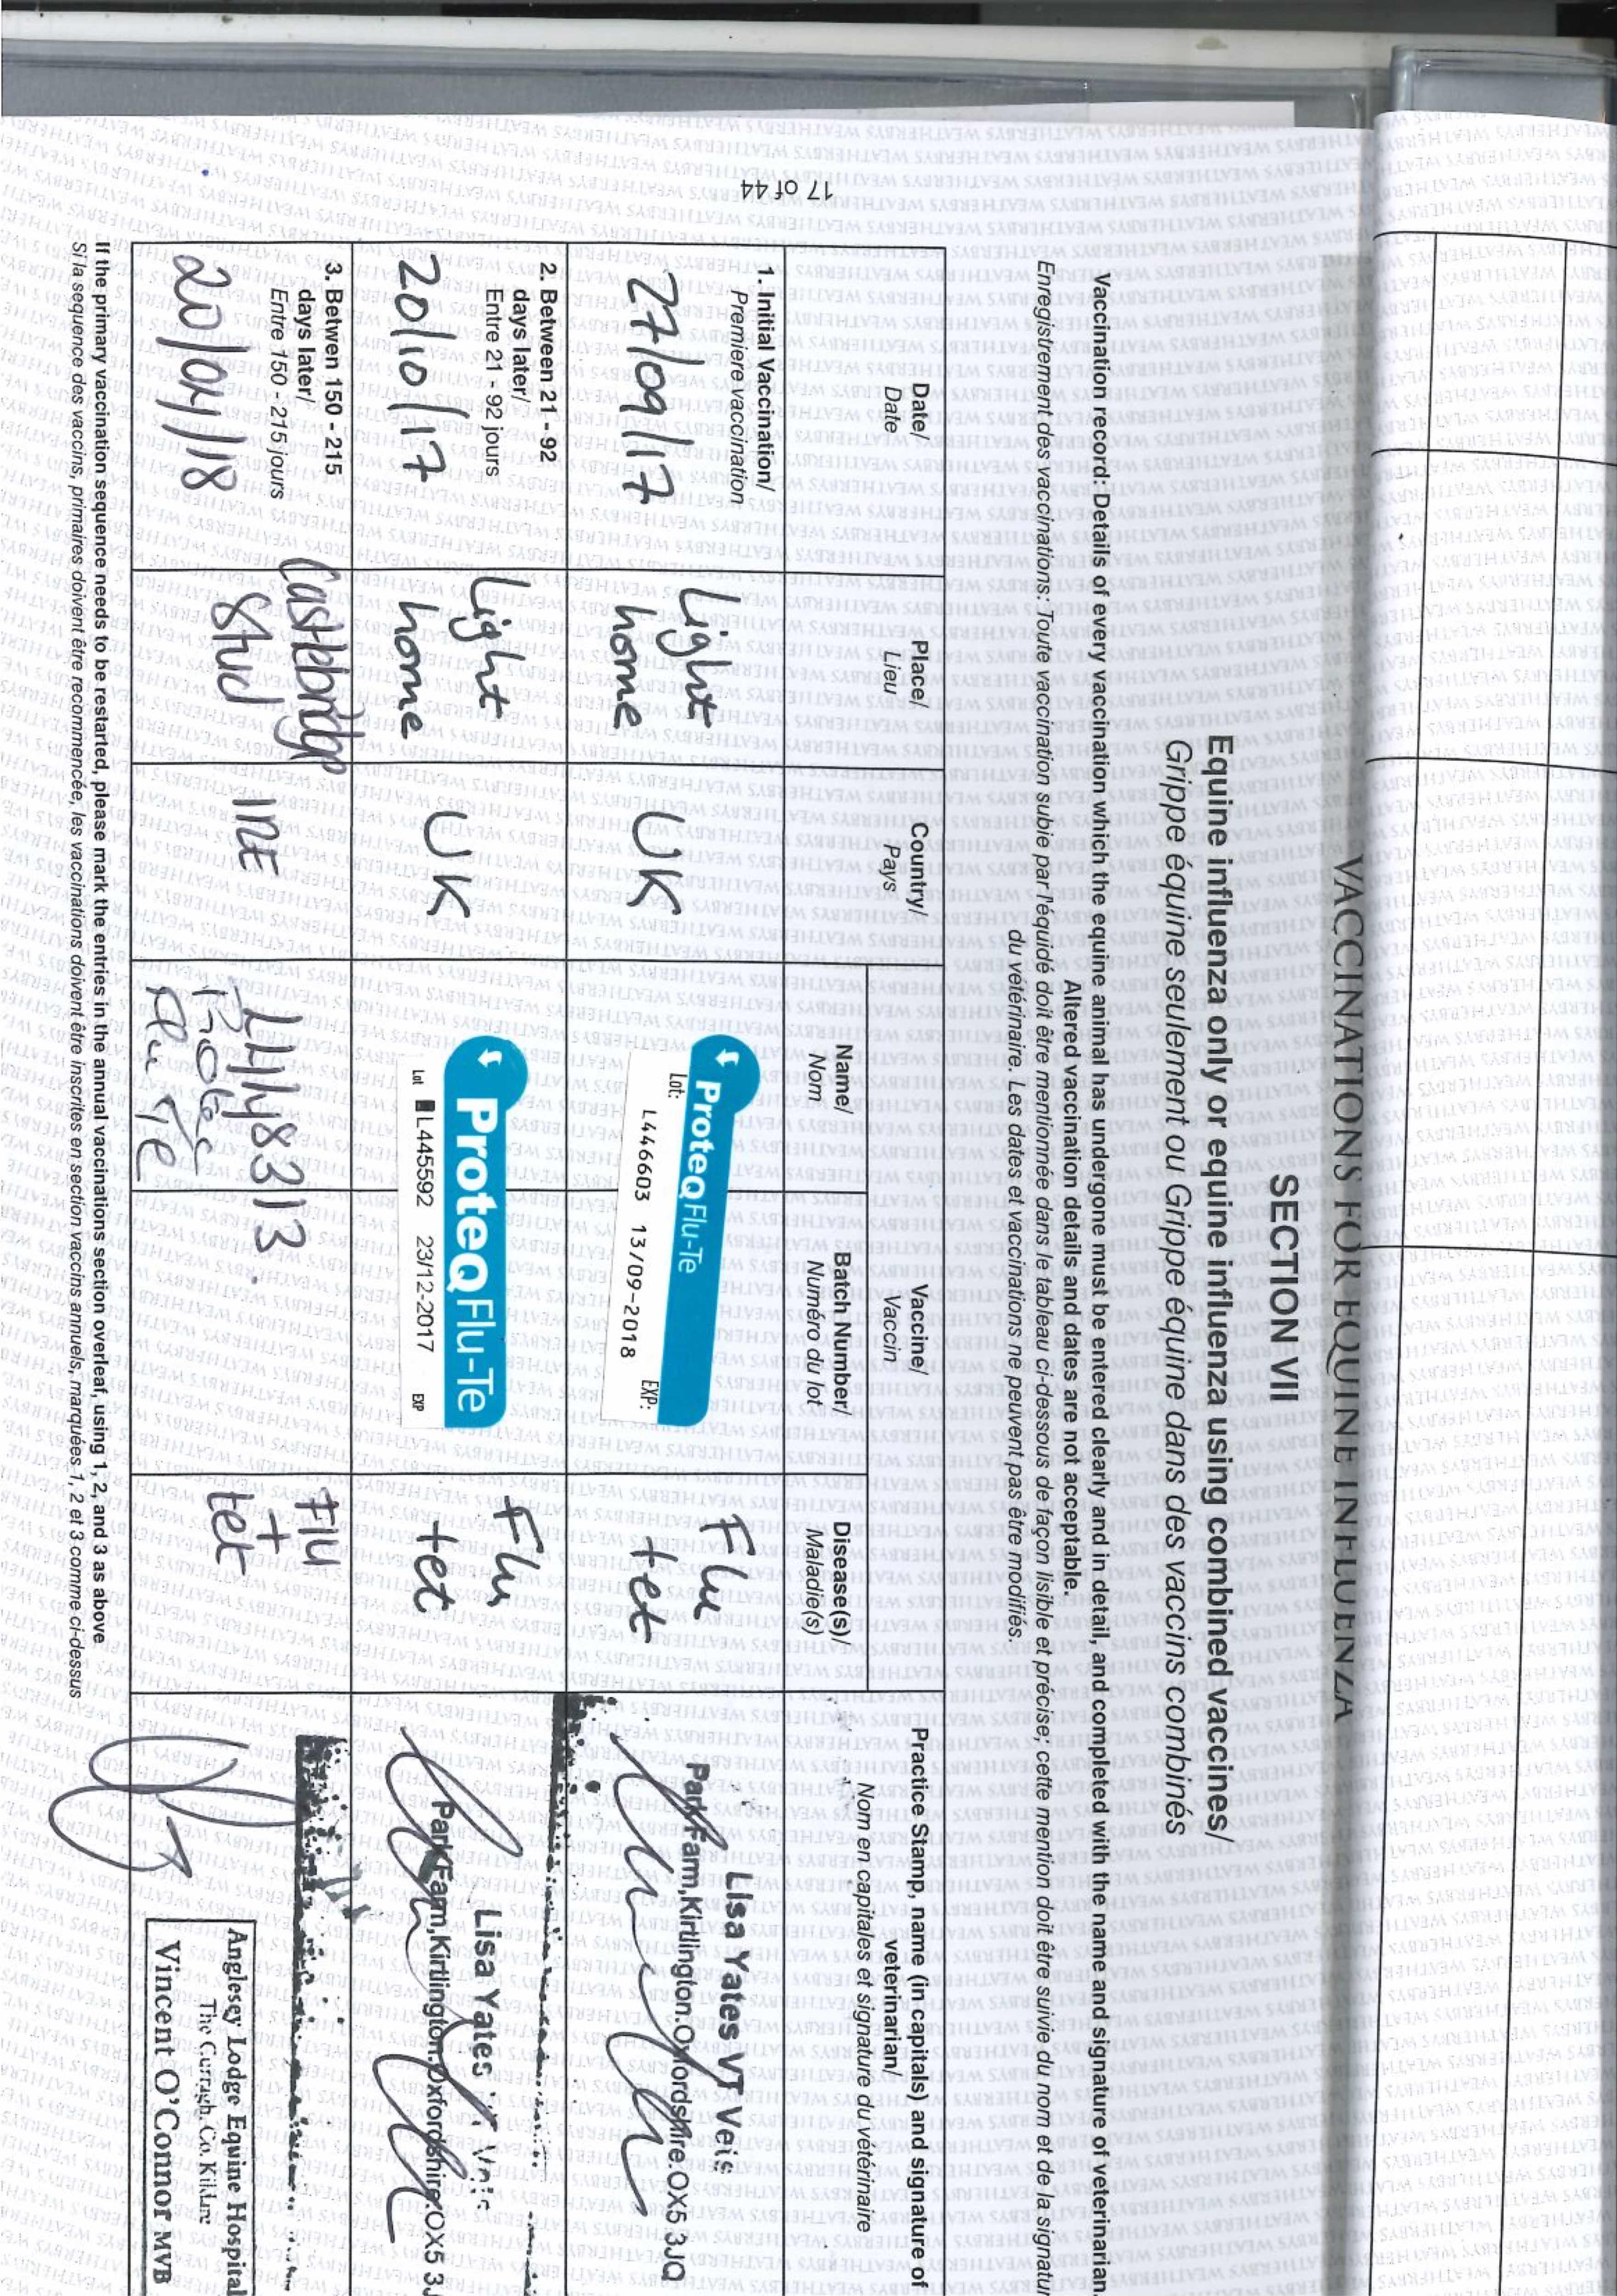 VACCINATIONS FOR EQUINE INFLUENZA
SECTION VII
Equine influenza only or equine influenza using combined vaccines/
Grippe équine seulement ou Grippe équine dans des vaccins combinés
Vaccination record: Details of every vaccination which the equine animal has undergone must be entered clearly and in detail, and completed with the name and signature of veterinarian.
Altered vaccination details and dates are not acceptable.
Enregistrement des vaccinations: Toute vaccination subie par l'équidé doit être mentionnée dans le tableau ci-dessous de façon lisible et précise; cette mention doit être suivie du nom et de la signatur
du vétérinaire. Les dates et vaccinations ne peuvent pas être modifiés.
Date/
Date
Place/
Lieu
Country/
Pays
Vaccine/
Vaccin
Name/
Nom
Batch Number/
Numéro du lot
Disease(s)/
Maladie(s)
Practice Stamp, name (in capitals) and signature of
veterinarian/
Nom en capitales et signature du vétérinaire
1. Initial Vaccination/
Premiere vaccination
27/09/17
Light
home
UK
ProteQ Flu-Te
Lot:
EXP:
L446603 13/09-2018
Flu
tet
Lisa Yates VT Vets
Park Farm,Kirtlington.Oxfordshire.OX5 3JQ
2. Between 21 - 92
days later/
Entre 21 - 92 jours
20/10/17
Light
home
UK
ProteQ Flu-Te
Lot L445592 23/12-2017 EXP
Flu
tet
Lisa Yates
Park Farm,Kirtlington.Oxfordshire.OX5 3J
3. Betwen 150 - 215
days later/
Entre 150 - 215 jours
20/04/18
Castlebridge
Stud
IRE
Flu
+
tet
Anglesey Lodge Equine Hospital
The Curragh, Co. Kildare
Vincent O'Connor MVB
If the primary vaccination sequence needs to be restarted, please mark the entries in the annual vaccinations section overleaf, using 1, 2, and 3 as above
Si la sequence des vaccins, primaires doivent être recommencée, les vaccinations doivent être inscrites en section vaccins annuels, marquées 1, 2 et 3 comme ci-dessus
17 of 44